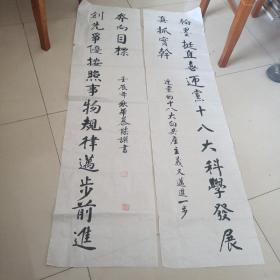 挺直喜迎黨十八大科學發展
真抓實幹
迎黨的十八大向共產主義又邁進一步
創先爭優按照事物規律邁步前進
奔向目標
壬辰年秋撰書